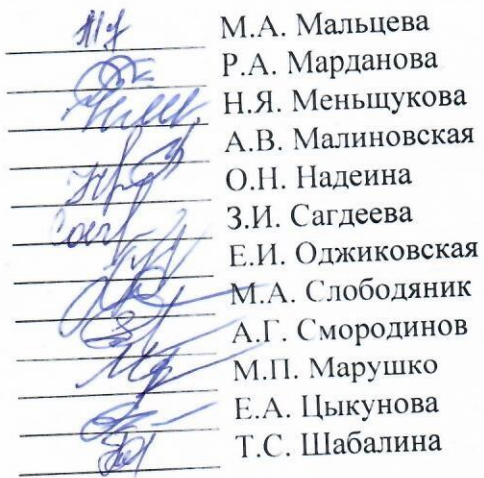 М.А. Мальцева
Р.А. Марданова
Н.Я. Меньщукова
А.В. Малиновская
О.Н. Надеина
З.И. Сагдеева
Е.И. Оджиковская
М.А. Слободяник
А.Г. Смородинов
М.П. Марушко
Е.А. Цыкунова
Т.С. Шабалина